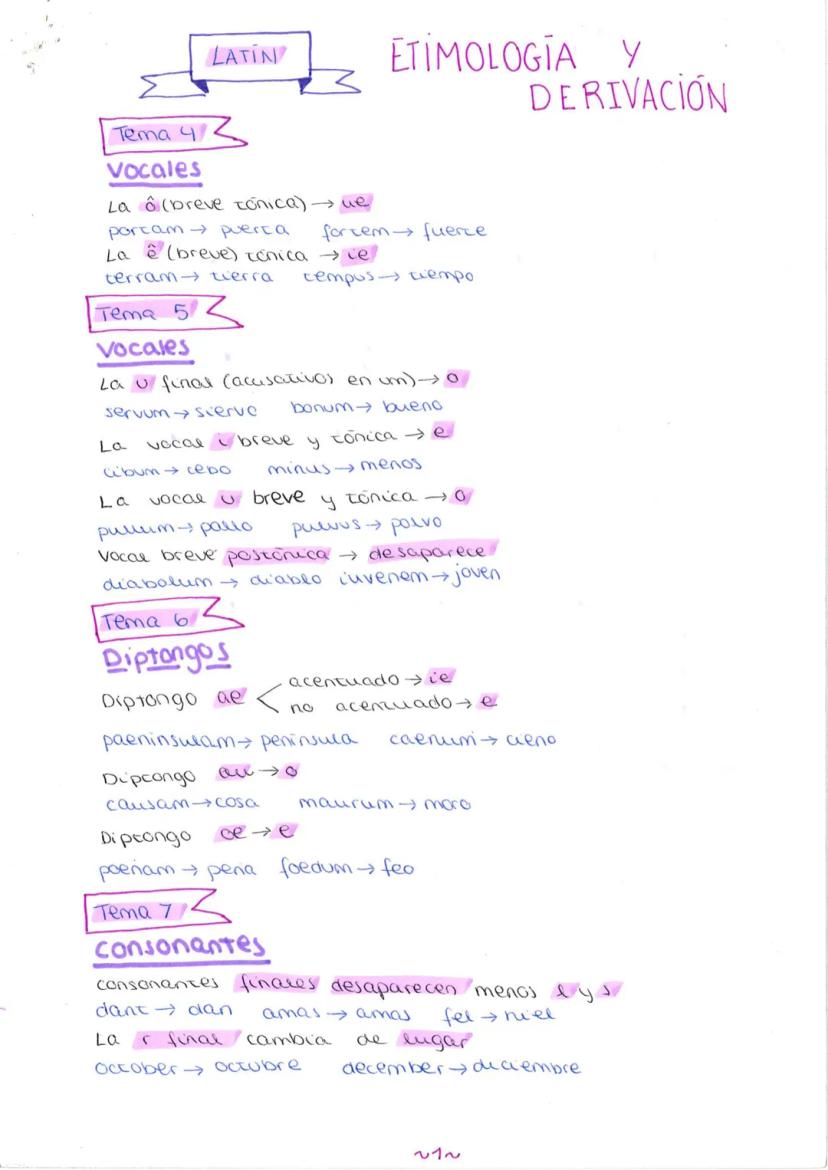 LATÍN
ETIMOLOGÍA Y
DERIVACIÓN
Tema 4
Vocales
La ô (breve tónica) → ue
portam → puerta fortem → fuerte
La ê (breve) tónica → ie
terram → tierra tempus → tiempo
Tema 5
Vocales
La u final (acusativos en um) → o
servum → siervo bonum → bueno
La vocal i breve y tónica → e
cibum → cebo minus → menos
La vocal u breve y tónica → o
pullum → pollo pulvus → polvo
Vocal breve postónica → desaparece
diabolum → diablo iuvenem → joven
Tema 6
Diptongos
Diptongo ae < acentuado → ie
no acentuado → e
paeninsulam → península caenum → cieno
Diptongo au → o
causam → cosa maurum → moro
Diptongo oe → e
poenam → pena foedum → feo
Tema 7
Consonantes
consonantes finales desaparecen menos l y s
dant → dan amas → amas fel → hiel
La r final cambia de lugar
october → octubre december → diciembre
~1~